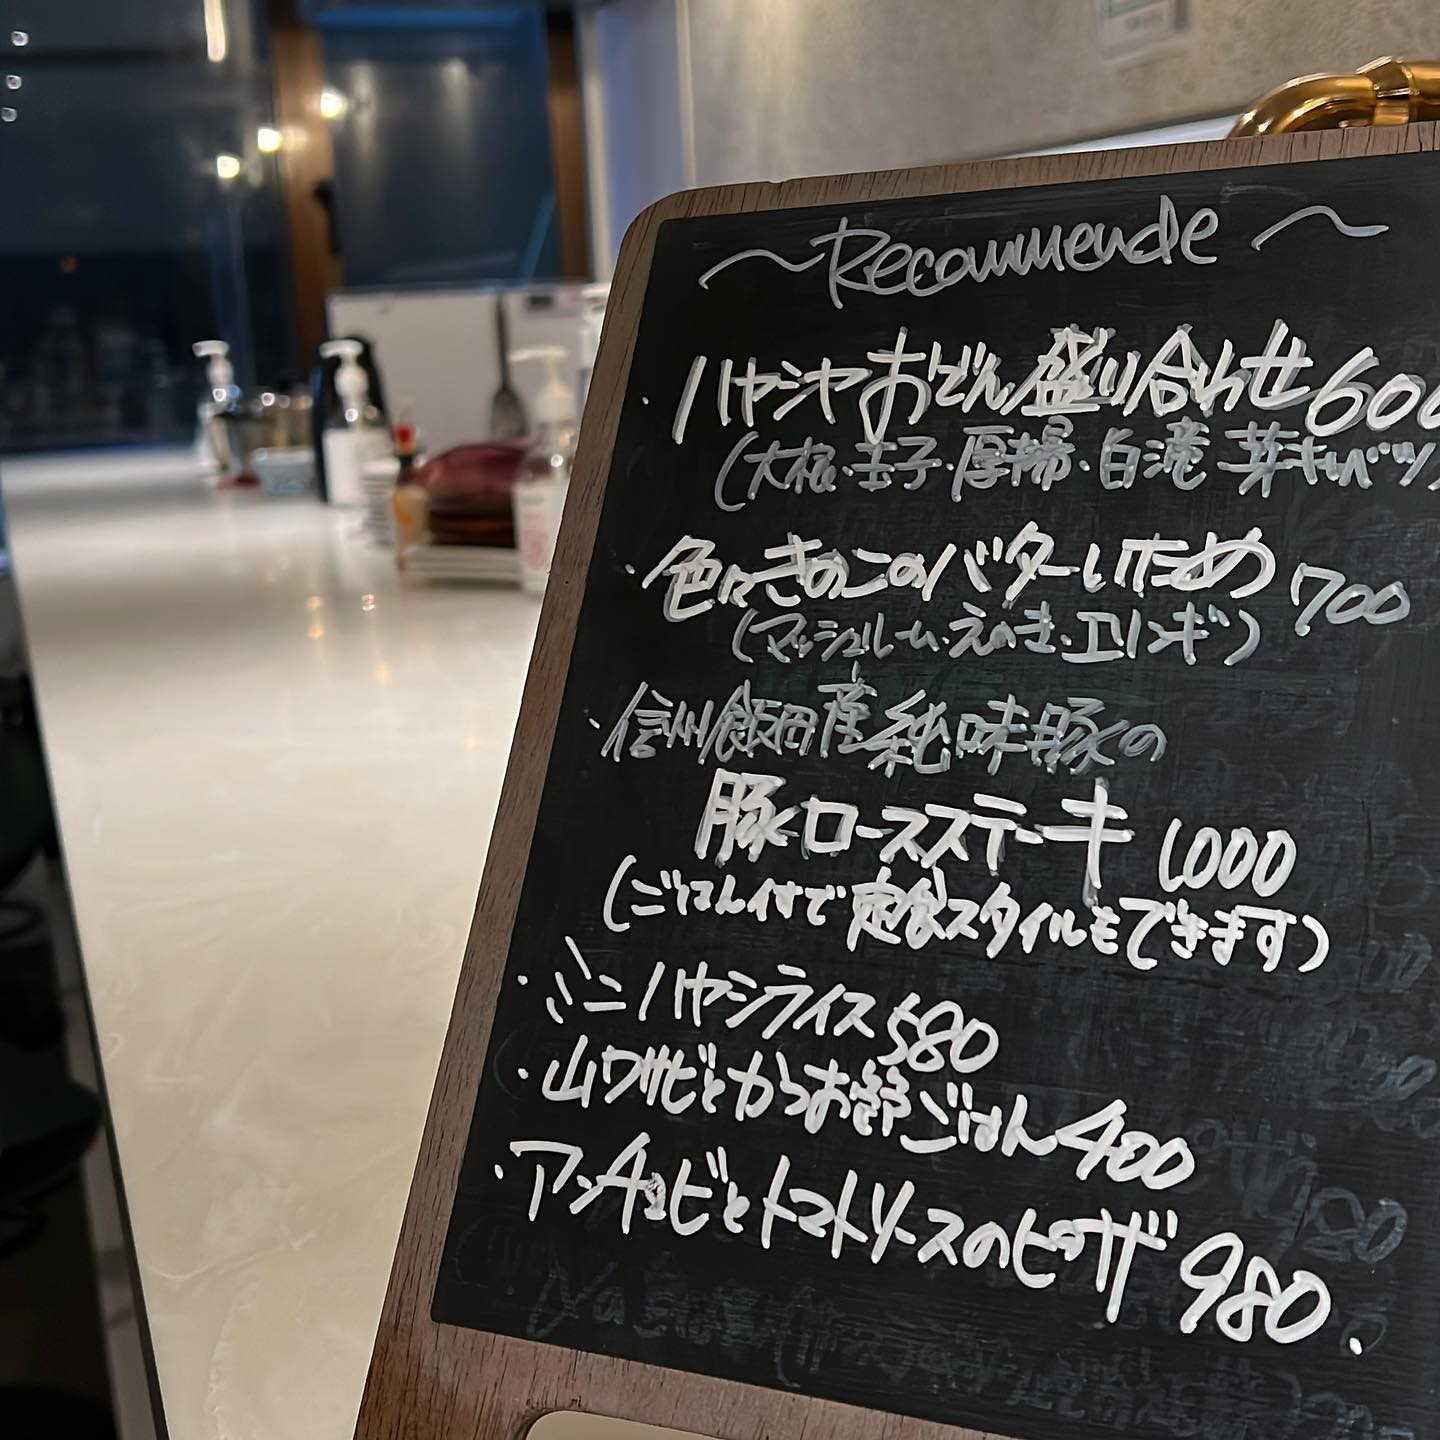 ～Recommende～
・ハヤシヤおでん盛り合わせ600
(大根・玉子・厚揚・白滝 芽キャベツ)
・色々きのこのバターしょうゆ炒め 700
(マッシュルーム・えのき・エリンギ)
・信州飯田産純味豚の
豚ロースステーキ 1000
(ごはん付で定食スタイルもできます)
・ミニハヤシライス580
・山ワサビとからお節ごはん400
・アンチョビとトマトソースのピザ 980.